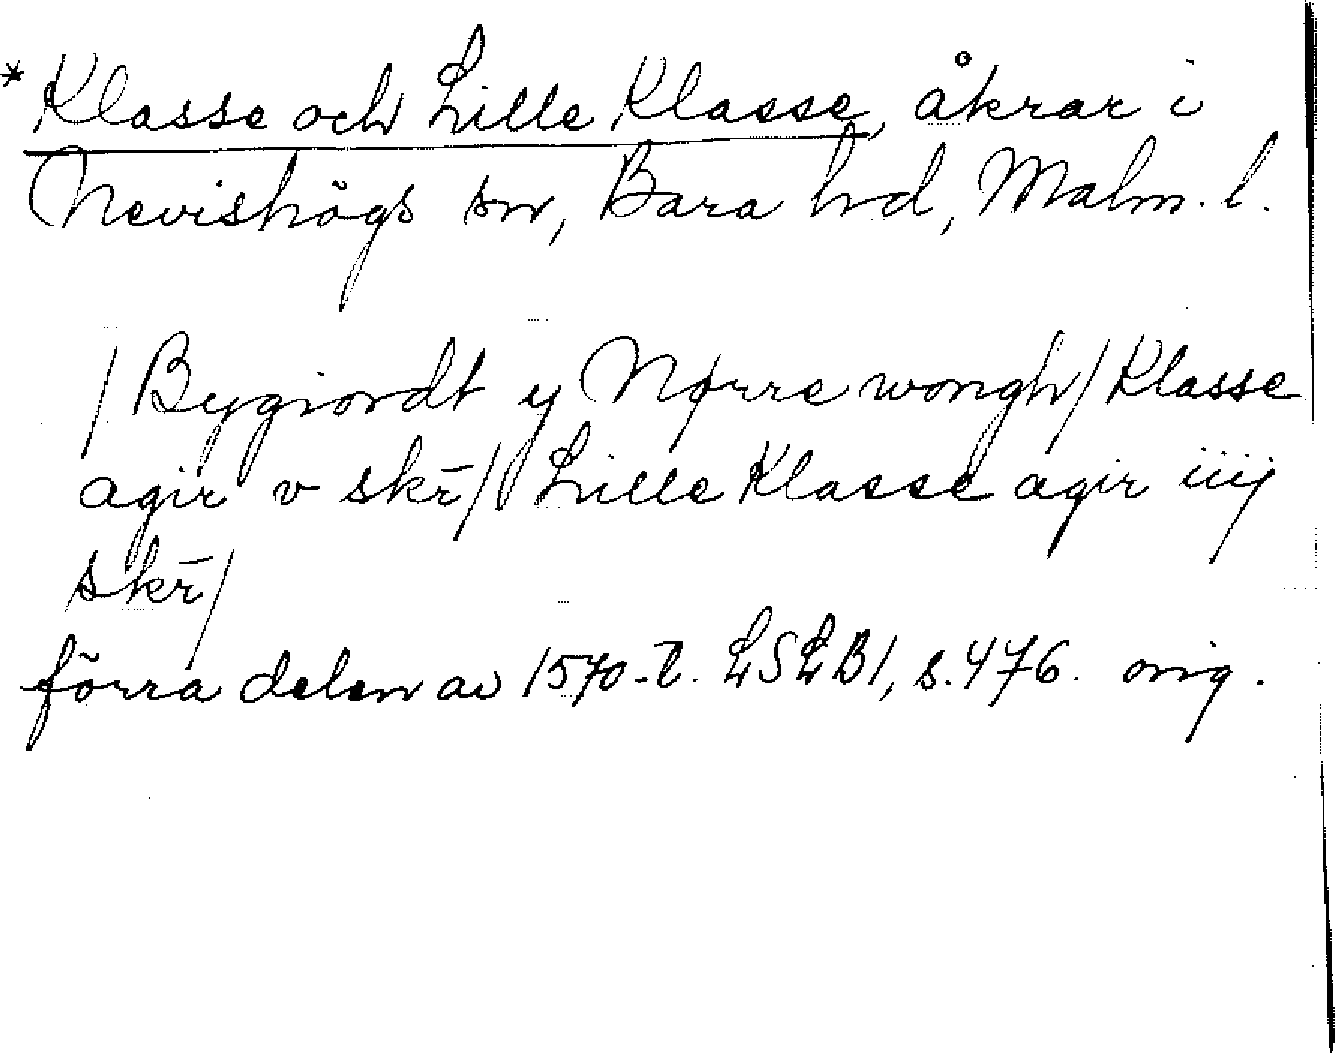 * Klasse och Lille Klasse, åkrar i
Nevishögs sn, Bara hd, Malm. l.
/Bygiordt y Nørre wongh/Klasse
agir v skr̄/Lille Klasse agir iiij
skr̄/
förra delen av 1570-t. LSLB1, s. 476. orig.